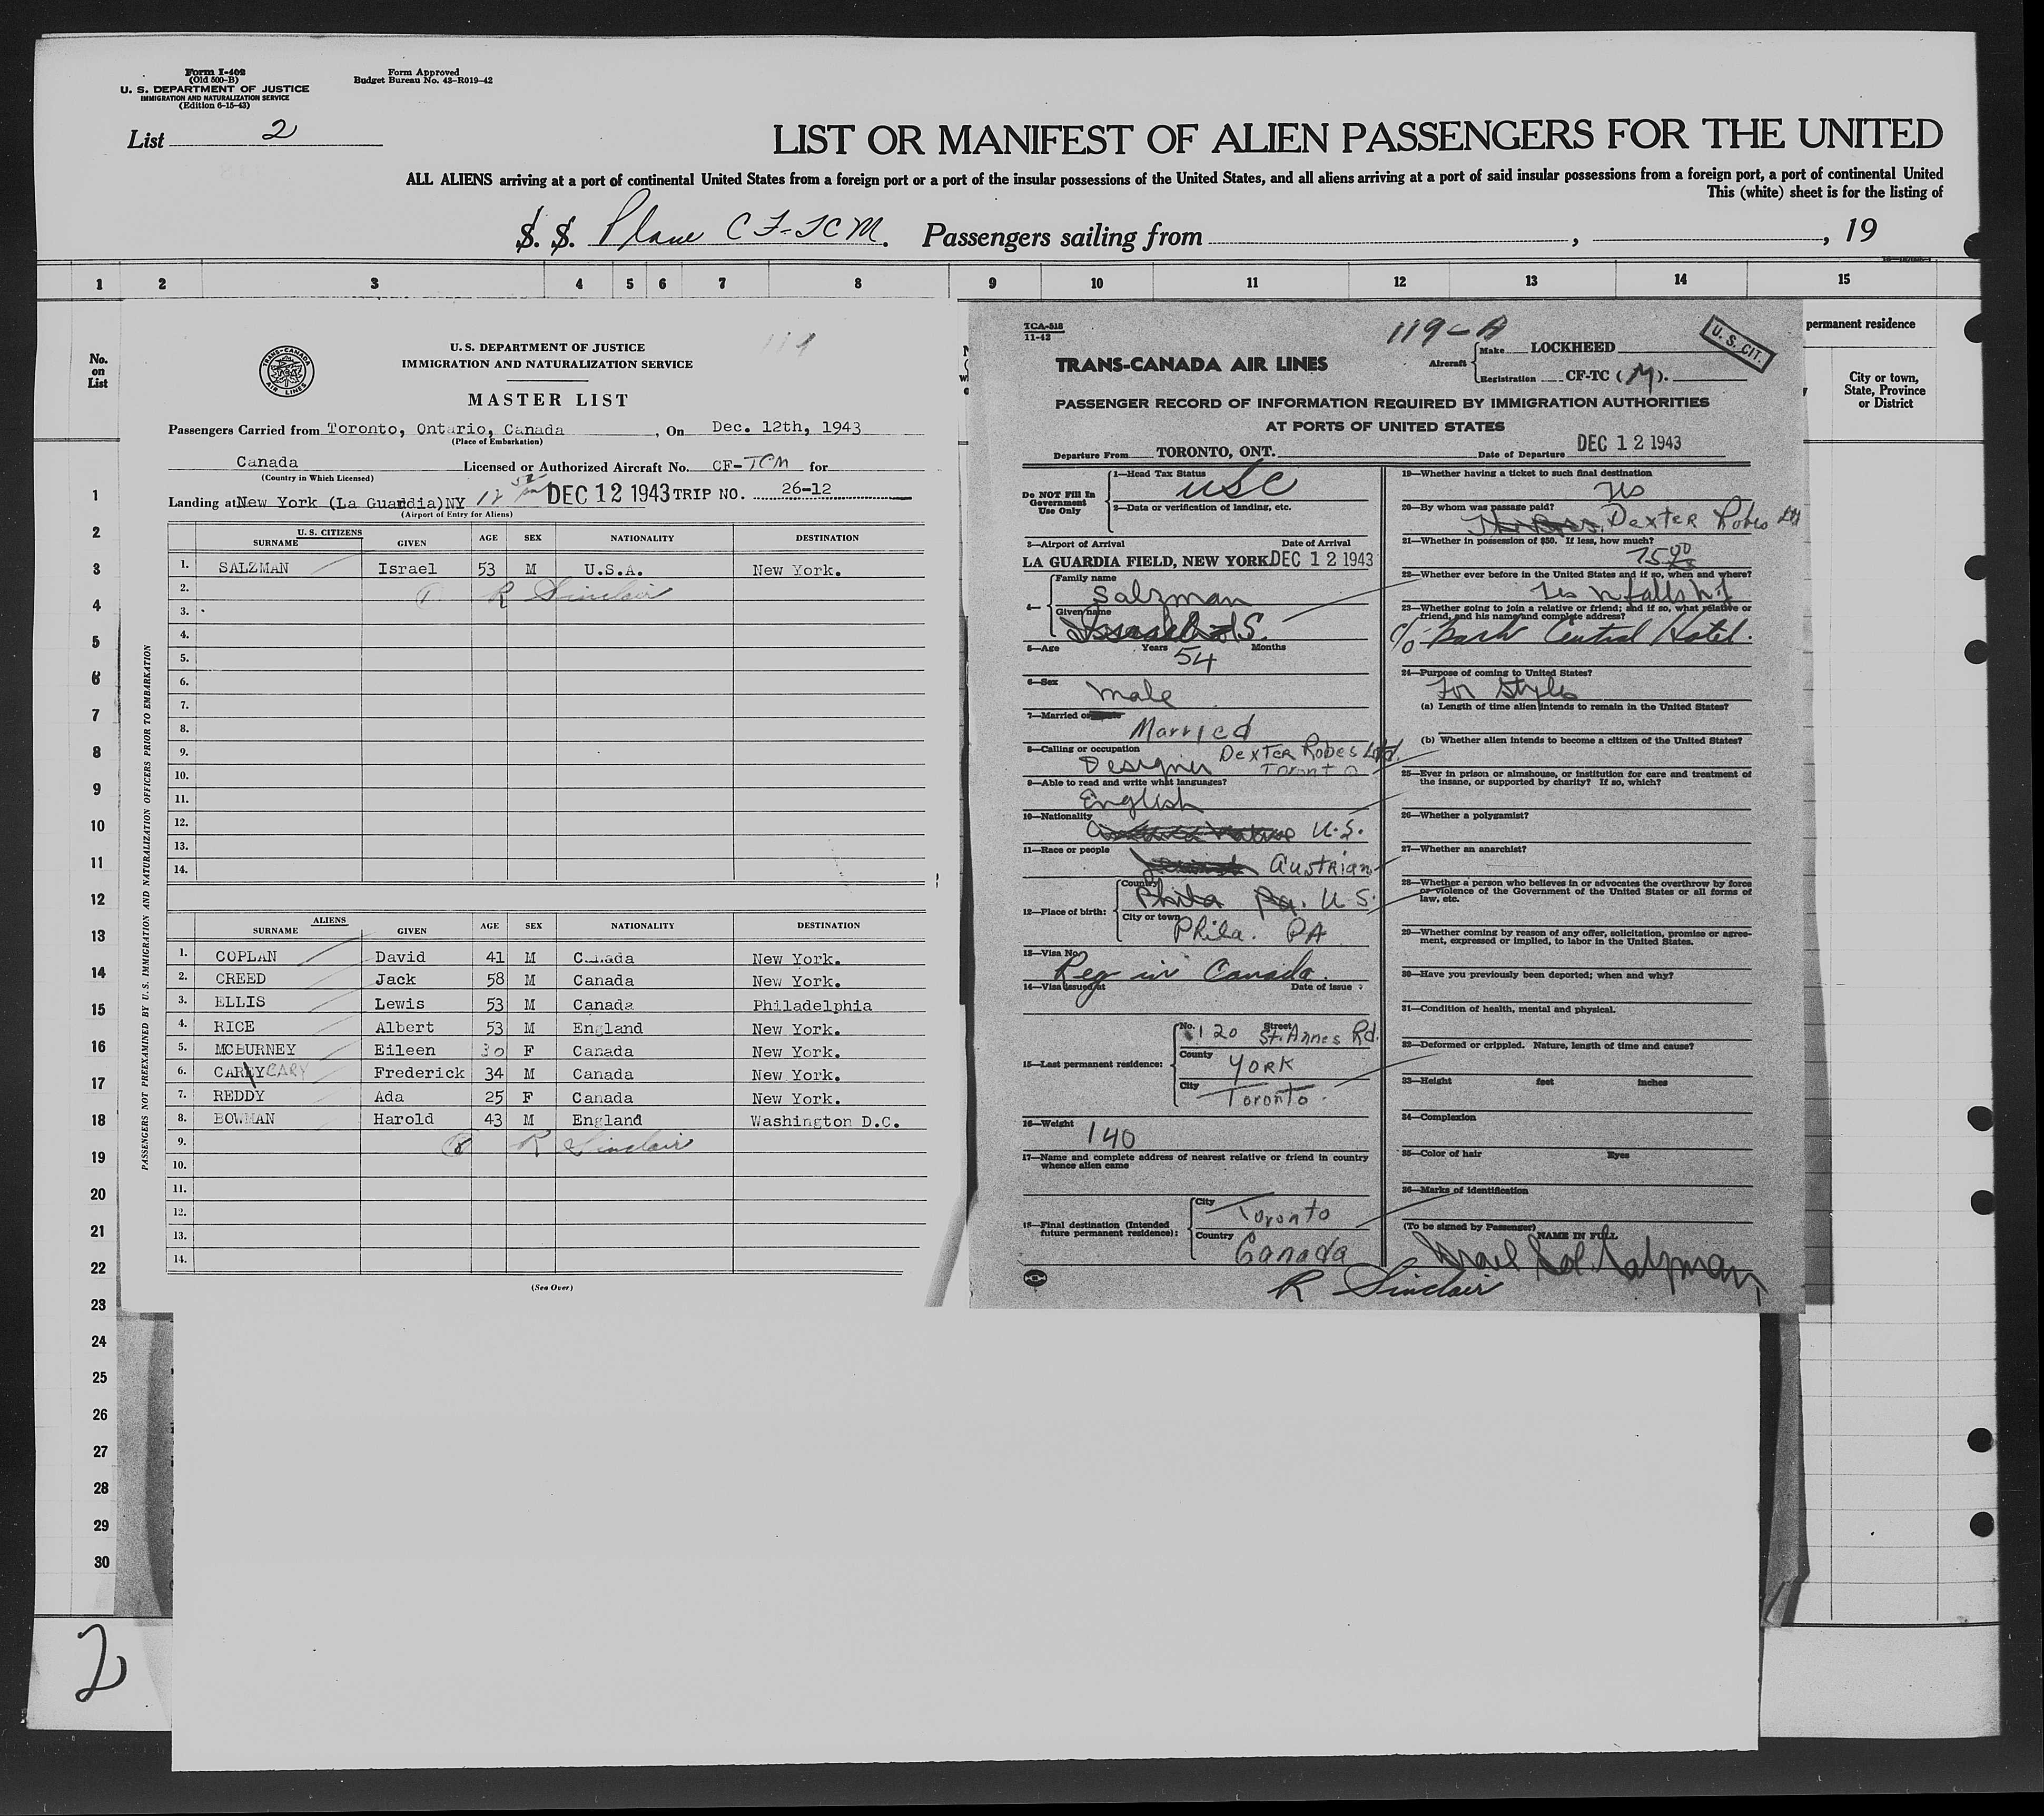 Form I-402
(Old 500-B)
U. S. DEPARTMENT OF JUSTICE
IMMIGRATION AND NATURALIZATION SERVICE
(Edition 6-15-43)
Form Approved
Budget Bureau No. 43-R019-42
List 2
LIST OR MANIFEST OF ALIEN PASSENGERS FOR THE UNITED
ALL ALIENS arriving at a port of continental United States from a foreign port or a port of the insular possessions of the United States, and all aliens arriving at a port of said insular possessions from a foreign port, a port of continental United
This (white) sheet is for the listing of
S. S. Plane CF-TCM. Passengers sailing from , , 19
1 2 3 4 5 6 7 8 9 10 11 12 13 14 15
No.
on
List
permanent residence
City or town,
State, Province
or District
1
2
3
4
5
6
7
8
9
10
11
12
13
14
15
16
17
18
19
20
21
22
23
24
25
26
27
28
29
30
2
TRANS-CANADA AIR LINES
119
U. S. DEPARTMENT OF JUSTICE
IMMIGRATION AND NATURALIZATION SERVICE
MASTER LIST
Passengers Carried from Toronto, Ontario, Canada, On Dec. 12th, 1943
(Place of Embarkation)
Canada Licensed or Authorized Aircraft No. CF-TCM for
(Country in Which Licensed)
Landing at New York (La Guardia)NY 12 52 pm DEC 12 1943 TRIP NO. 26-12
(Airport of Entry for Aliens)
PASSENGERS NOT PREEXAMINED BY U.S. IMMIGRATION AND NATURALIZATION OFFICERS PRIOR TO EMBARKATION
U. S. CITIZENS
SURNAME GIVEN AGE SEX NATIONALITY DESTINATION
1. SALZMAN Israel 53 M U.S.A. New York.
2. 1 R Sinclair
3.
4.
5.
6.
7.
8.
9.
10.
11.
12.
13.
14.
ALIENS
SURNAME GIVEN AGE SEX NATIONALITY DESTINATION
1. COPLAN David 41 M Canada New York.
2. CREED Jack 58 M Canada New York.
3. ELLIS Lewis 53 M Canada Philadelphia
4. RICE Albert 53 M England New York.
5. MCBURNEY Eileen 30 F Canada New York.
6. CAREY CARY Frederick 34 M Canada New York.
7. REDDY Ada 25 F Canada New York.
8. BOWMAN Harold 43 M England Washington D.C.
9. 8 R Sinclair
10.
11.
12.
13.
14.
(See Over)
TCA-518
11-42
119-A
U. S. CIT.
TRANS-CANADA AIR LINES
Aircraft Make LOCKHEED
Registration CF-TC (M).
PASSENGER RECORD OF INFORMATION REQUIRED BY IMMIGRATION AUTHORITIES
AT PORTS OF UNITED STATES
Departure From TORONTO, ONT. Date of Departure DEC 12 1943
Do NOT Fill In
Government
Use Only
1—Head Tax Status
USC
2—Data or verification of landing, etc.
3—Airport of Arrival Date of Arrival
LA GUARDIA FIELD, NEW YORK DEC 12 1943
4— Family name
Salzman
Given name
S.
5—Age Years Months
54
6—Sex
male
7—Married or
Married
8—Calling or occupation
Designer Dexter Robes Ltd.
Toronto
9—Able to read and write what languages?
English
10—Nationality
U.S.
11—Race or people
Austrian
12—Place of birth:
Country
Phila Pa. U.S.
City or town
Phila. PA
13—Visa No.
Reg in Canada.
14—Visa issued at Date of issue
15—Last permanent residence:
No. 120 Street St. Annes Rd.
County
YORK
City
Toronto
16—Weight
140
17—Name and complete address of nearest relative or friend in country
whence alien came
18—Final destination (Intended
future permanent residence):
City
Toronto
Country
Canada
19—Whether having a ticket to such final destination
Yes
20—By whom was passage paid?
Dexter Robes Ltd
21—Whether in possession of $50. If less, how much?
75.00
22—Whether ever before in the United States and if so, when and where?
Yes N Falls N.Y
23—Whether going to join a relative or friend; and if so, what relative or
friend, and his name and complete address?
c/o Park Central Hotel.
24—Purpose of coming to United States?
For Styles
(a) Length of time alien intends to remain in the United States?
(b) Whether alien intends to become a citizen of the United States?
25—Ever in prison or almshouse, or institution for care and treatment of
the insane, or supported by charity? If so, which?
26—Whether a polygamist?
27—Whether an anarchist?
28—Whether a person who believes in or advocates the overthrow by force
or violence of the Government of the United States or all forms of
law, etc.
29—Whether coming by reason of any offer, solicitation, promise or agree-
ment, expressed or implied, to labor in the United States.
30—Have you previously been deported; when and why?
31—Condition of health, mental and physical.
32—Deformed or crippled. Nature, length of time and cause?
33—Height feet inches
34—Complexion
35—Color of hair Eyes
36—Marks of identification
(To be signed by Passenger) NAME IN FULL
Israel Sol. Salzman
R Sinclair